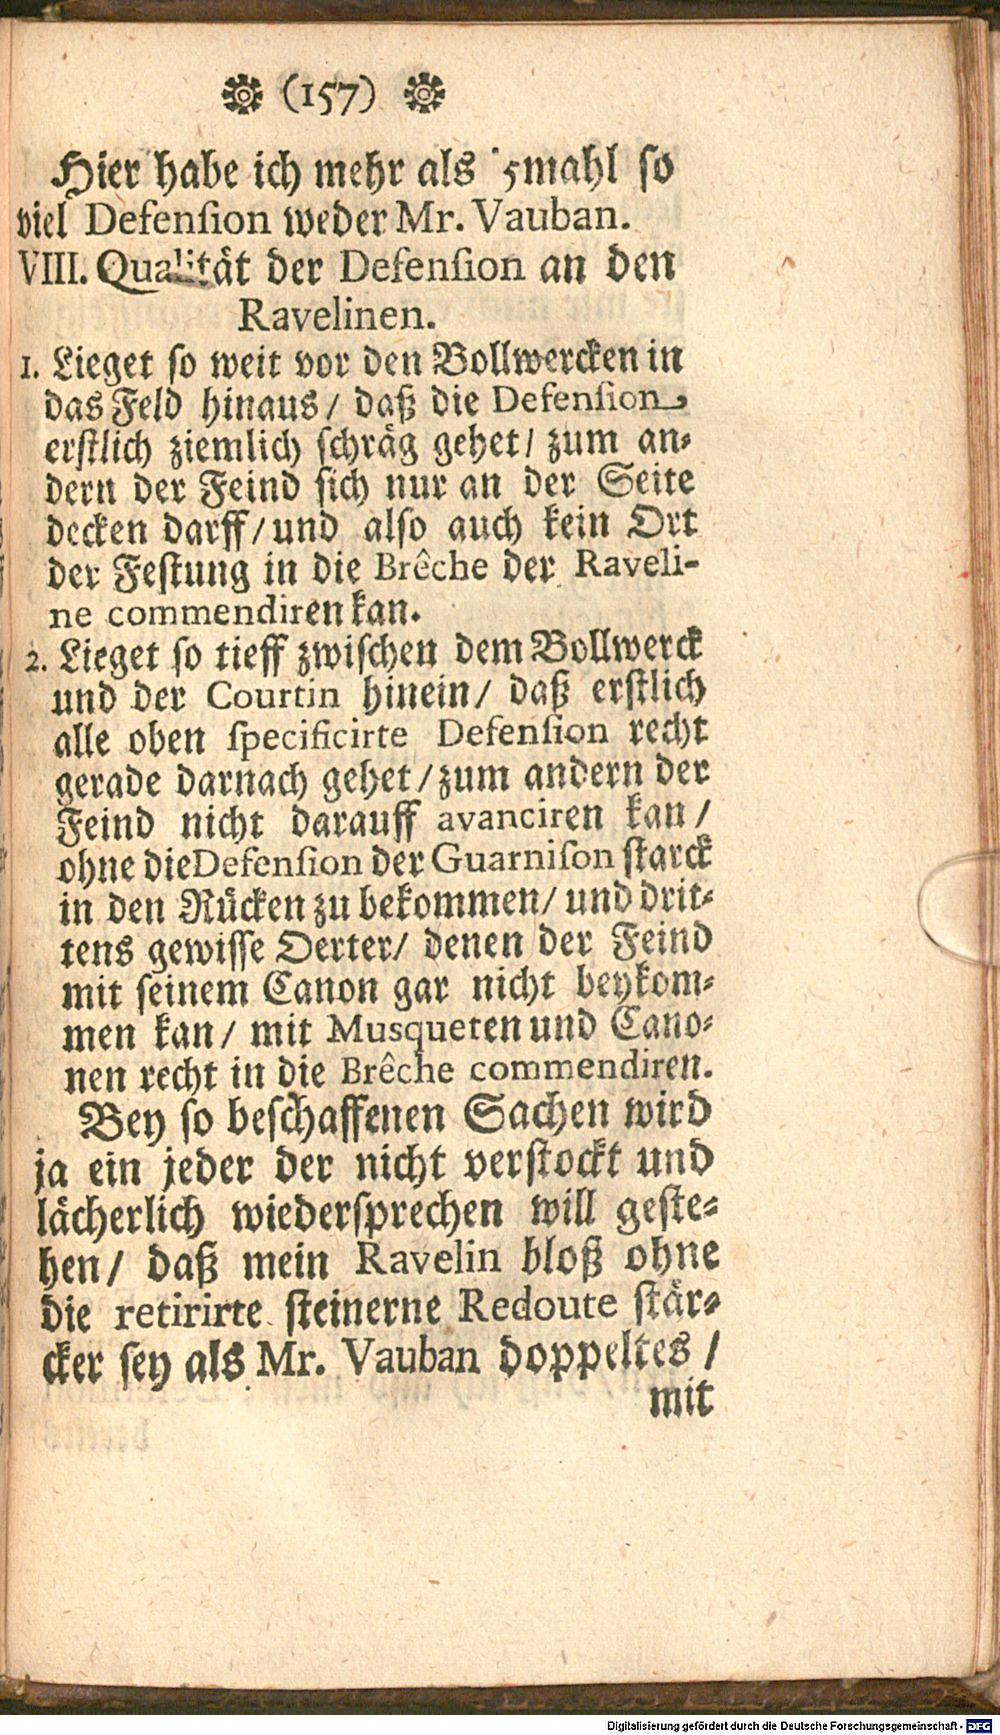 (157)
Hier habe ich mehr als 5mahl so
viel Defension weder Mr. Vauban.
VIII. Qualität der Defension an den
Ravelinen.
1. Lieget so weit vor den Bollwercken in
das Feld hinaus/ daß die Defension
erstlich ziemlich schräg gehet/ zum an-
dern der Feind sich nur an der Seite
decken darff/ und also auch kein Ort
der Festung in die Brêche der Raveli-
ne commendiren kan.
2. Lieget so tieff zwischen dem Bollwerck
und der Courtin hinein/ daß erstlich
alle oben specificirte Defension recht
gerade darnach gehet/ zum andern der
Feind nicht darauff avanciren kan/
ohne die Defension der Guarnison starck
in den Rücken zu bekommen/ und drit-
tens gewisse Oerter/ denen der Feind
mit seinem Canon gar nicht beykom-
men kan/ mit Musqueten und Cano-
nen recht in die Brêche commendiren.
Bey so beschaffenen Sachen wird
ja ein jeder der nicht verstockt und
lächerlich wiedersprechen will geste-
hen/ daß mein Ravelin bloß ohne
die retirirte steinerne Redoute stär-
cker sey als Mr. Vauban doppeltes/
mit
Digitalisierung gefördert durch die Deutsche Forschungsgemeinschaft - DFG